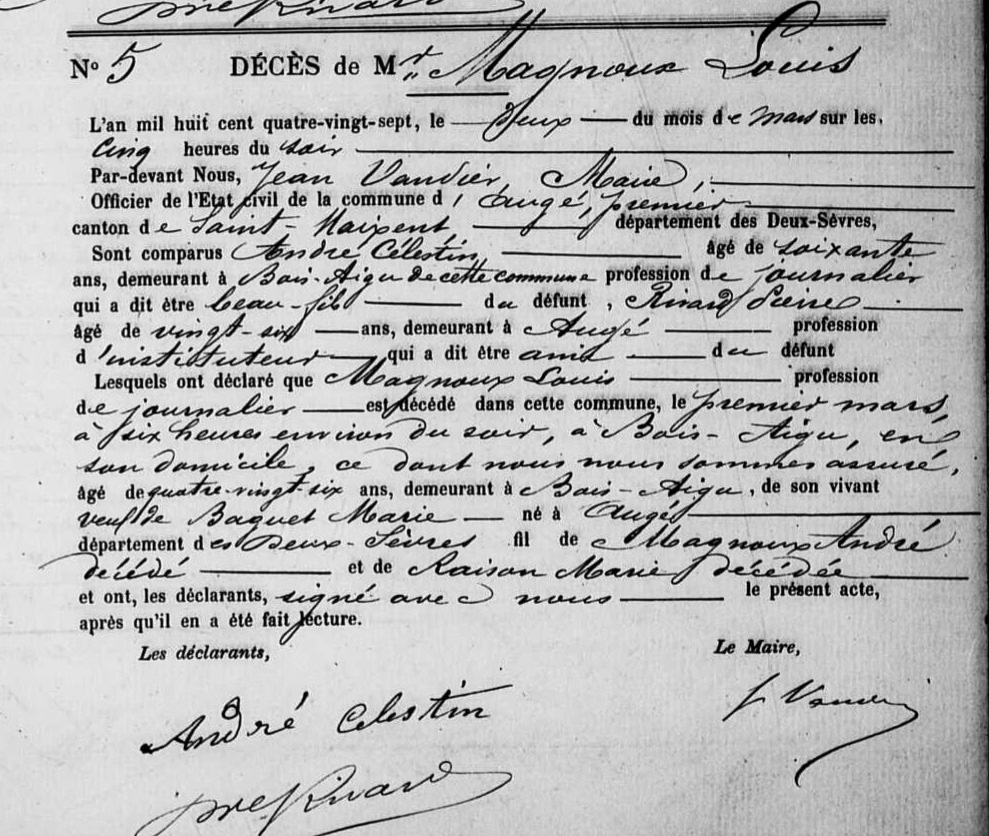 Pre Rivard
No 5 DÉCÈS de Mr Magnoux Louis
L'an mil huit cent quatre-vingt-sept, le deux du mois de mars sur les.
Cinq heures du soir
Par-devant Nous, Jean Vandier, Maire,
Officier de l'Etat civil de la commune d'Augé, premier
canton de Saint-Maixent, département des Deux-Sèvres,
Sont comparus André Célestin, âgé de soixante
ans, demeurant à Bois-Aigu de cette commune profession de journalier
qui a dit être beau-fils du défunt, Rivard Pierre
âgé de vingt-six ans, demeurant à Augé profession
d'instituteur qui a dit être ami du défunt
Lesquels ont déclaré que Magnoux Louis profession
de journalier est décédé dans cette commune, le premier mars,
à six heures environ du soir, à Bois-Aigu, en
son domicile, ce dont nous nous sommes assuré,
âgé de quatre-vingt-six ans, demeurant à Bois-Aigu, de son vivant
veuf de Baguet Marie né à Augé
département des Deux-Sèvres fil de Magnoux André
décédé et de Raison Marie décédée
et ont, les déclarants, signé avec nous le présent acte,
après qu'il en a été fait lecture.
Les déclarants, Le Maire,
André Celestin J Vandier
Pre Rivard